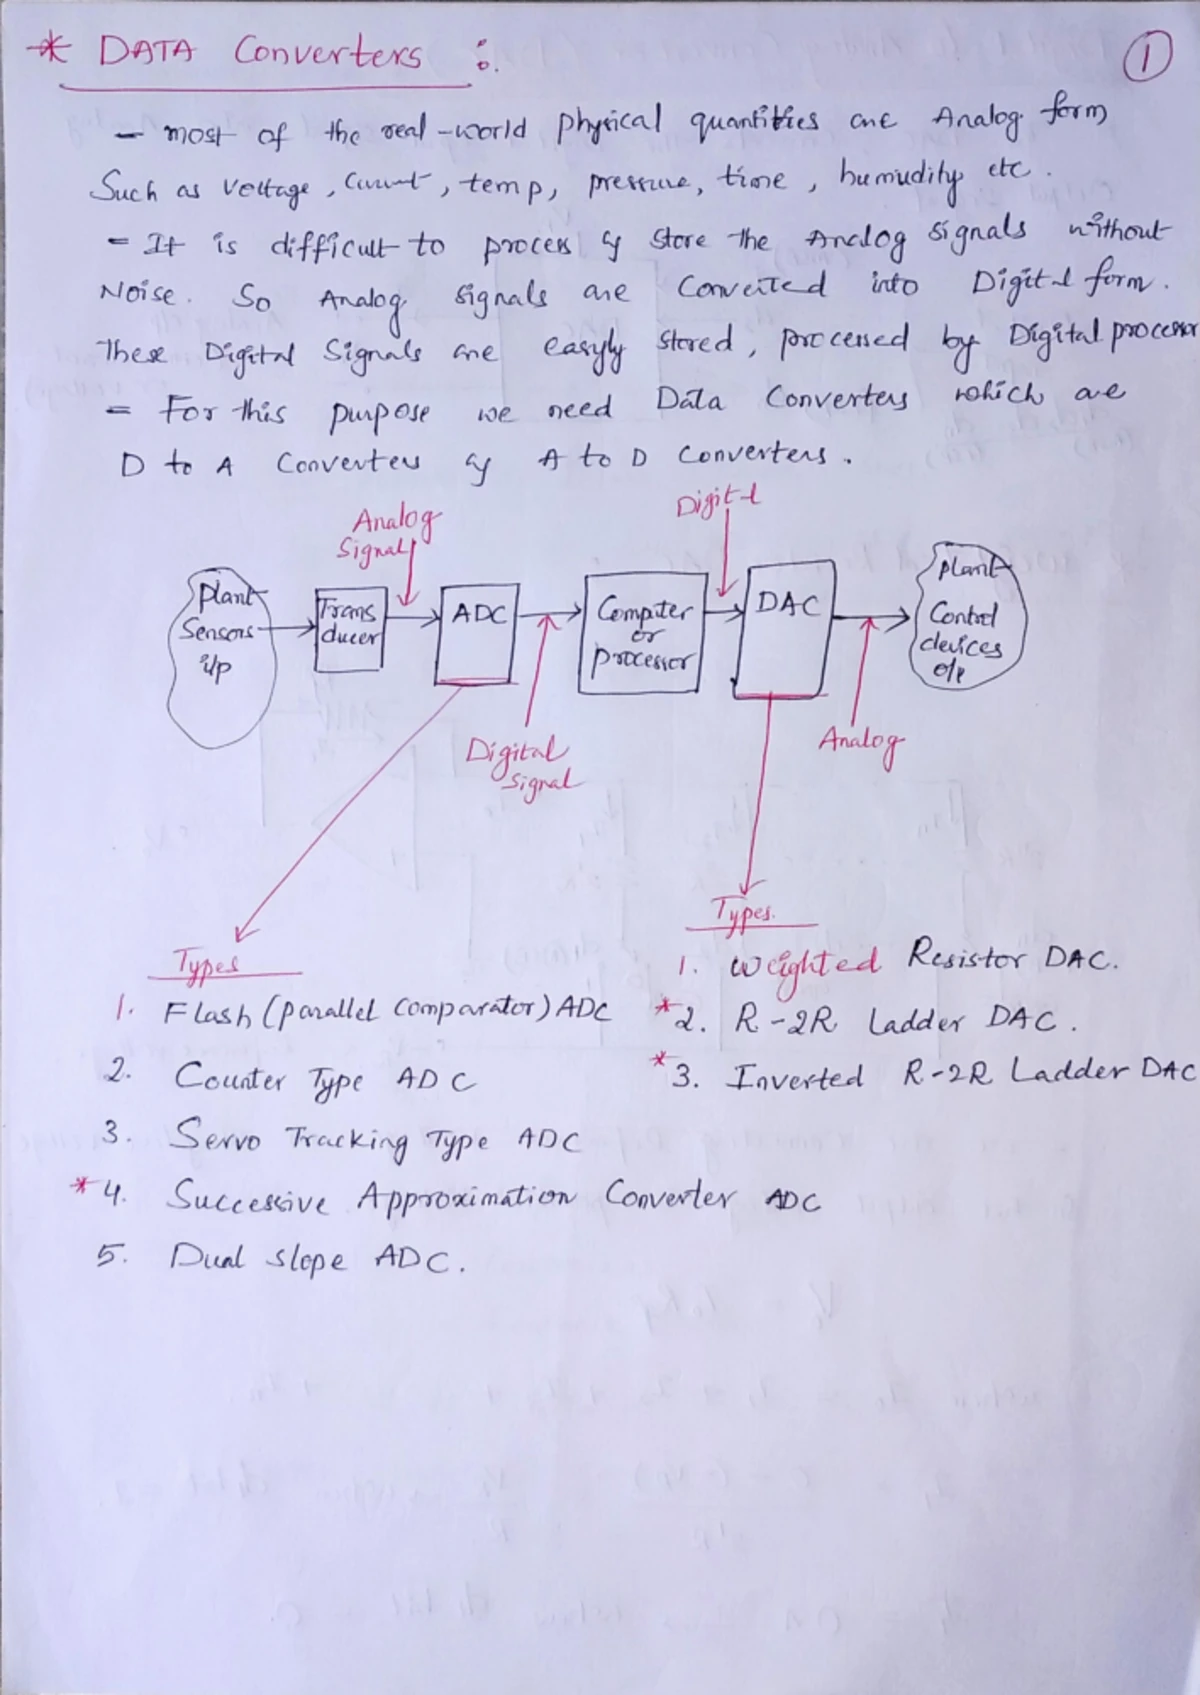 * DATA Converters :.
1
- most of the real-world physical quantities are Analog form
Such as Voltage, Current, temp, pressure, time, humudity etc.
- It is difficult to process & store the Analog signals without
Noise. So Analog signals are Converted into Digital form.
These Digital Signals are easyly stored, processed by Digital processor
- For this purpose we need Data Converters which are
D to A Converters & A to D Converters.
Analog
Signal
Digital
Plant
Sensors
i/p
Trans
ducer
ADC
Computer
or
processor
DAC
plant
Control
devices
o/p
Digital
Signal
Analog
Types
1. Flash (parallel comparator) ADC
2. Counter Type ADC
3. Servo Tracking Type ADC
*4. Successive Approximation Converter ADC
5. Dual slope ADC.
Types.
1. Weighted Resistor DAC.
*2. R-2R Ladder DAC.
*3. Inverted R-2R Ladder DAC